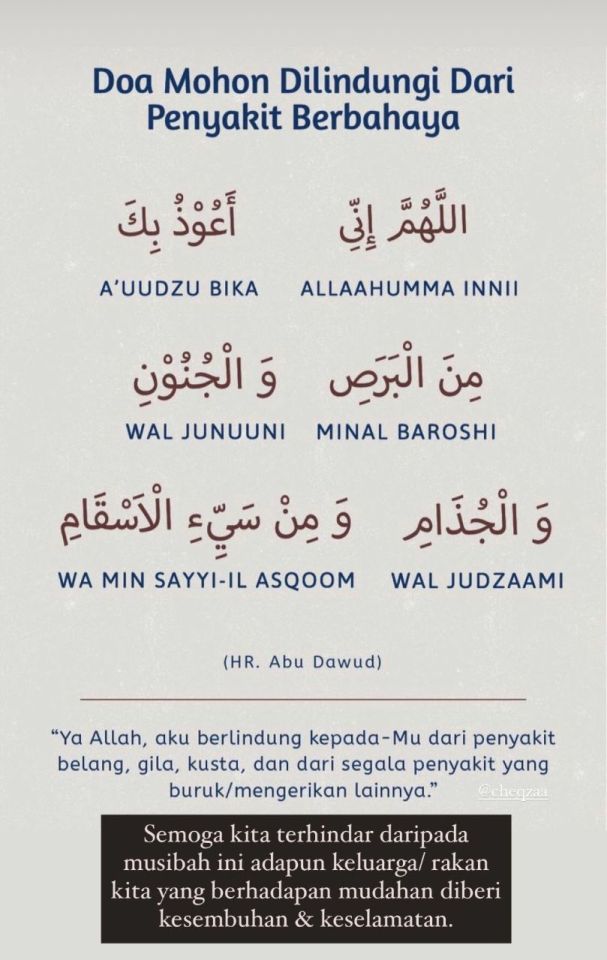 Doa Mohon Dilindungi Dari
Penyakit Berbahaya
اللَّهُمَّ إِنِّي أَعُوْذُ بِكَ
A’UUDZU BIKA ALLAAHUMMA INNII
مِنَ الْبَرَصِ وَ الْجُنُوْنِ
WAL JUNUUNI MINAL BAROSHI
وَ الْجُذَامِ وَ مِنْ سَيِّءِ الْاَسْقَامِ
WA MIN SAYYI-IL ASQOOM WAL JUDZAAMI
(HR. Abu Dawud)
“Ya Allah, aku berlindung kepada-Mu dari penyakit
belang, gila, kusta, dan dari segala penyakit yang
buruk/mengerikan lainnya.” @cheqzaa
Semoga kita terhindar daripada
musibah ini adapun keluarga/ rakan
kita yang berhadapan mudahan diberi
kesembuhan & keselamatan.